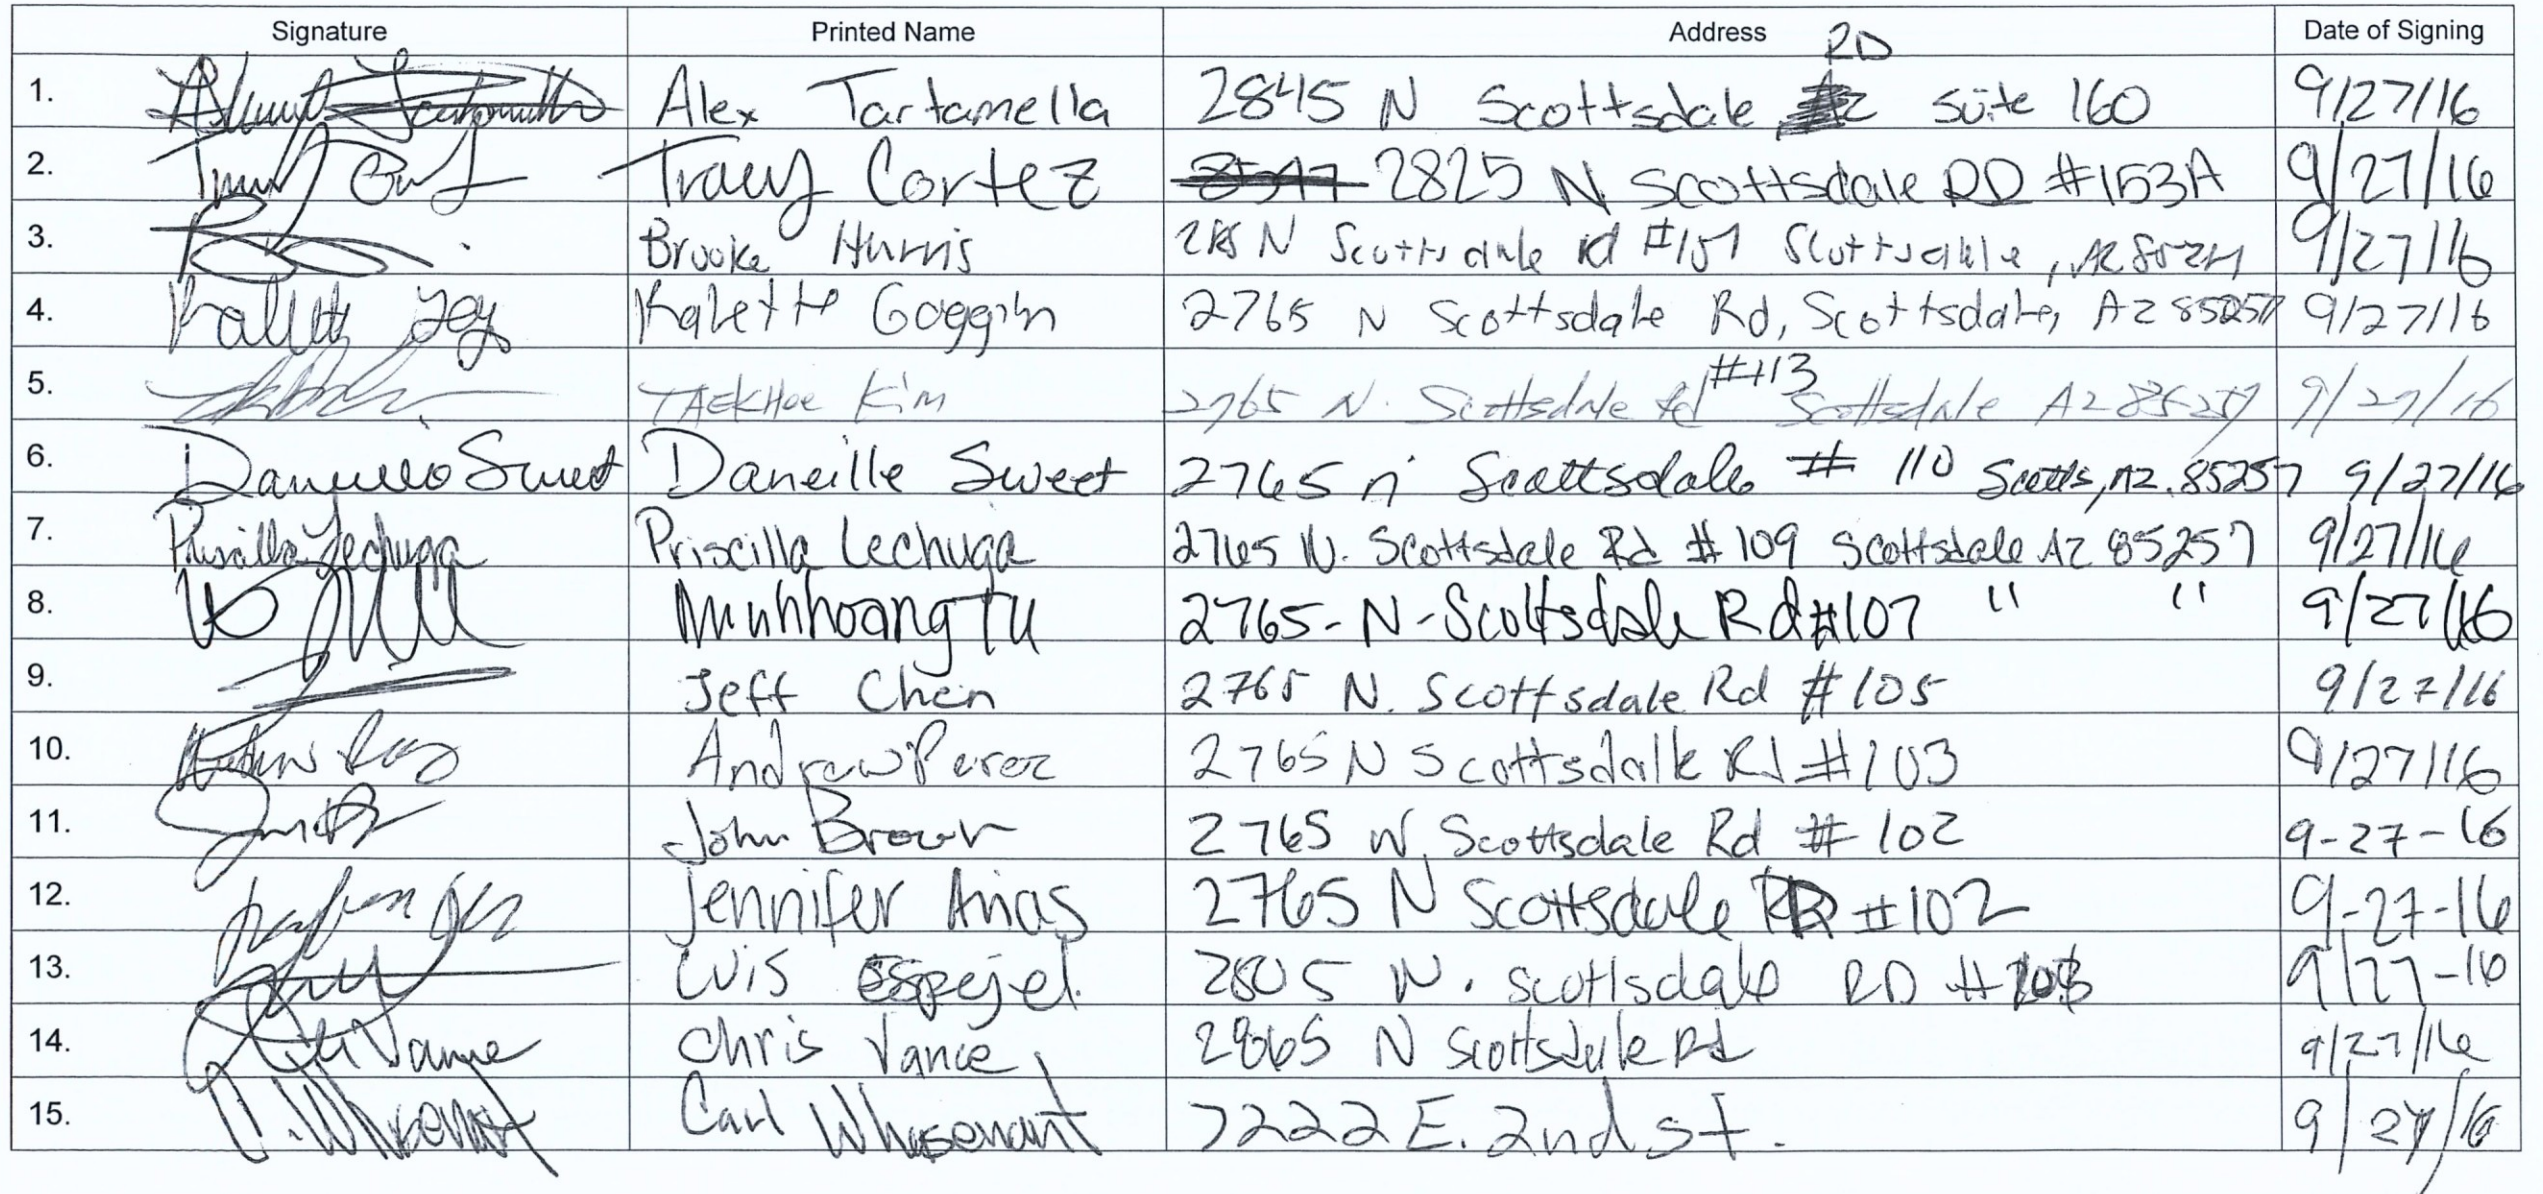 Signature Printed Name Address Date of Signing
RD
1. Alex Tartamella 2845 N Scottsdale Suite 160 9/27/16
2. Tracy Cortez 2825 N Scottsdale RD #153A 9/27/16
3. Brooke Harris N Scottsdale rd Scottsdale, AZ 9/27/16
4. Kalette Goggin 2765 N Scottsdale Rd, Scottsdale, AZ 85257 9/27/16
#113
5. TAEKHOE Kim 2765 N. Scottsdale Rd Scottsdale AZ 85257 9/27/16
6. Daneille Sweet Daneille Sweet 2765 n Scottsdale # 110 Scotts, AZ. 85257 9/27/16
7. Priscilla Lechuga Priscilla Lechuga 2765 N. Scottsdale Rd #109 Scottsdale AZ 85257 9/27/16
8. Minhhoang Tu 2765-N-Scottsdale Rd #107 " " 9/27/16
9. Jeff Chen 2765 N. Scottsdale Rd #105 9/27/16
10. Andrew Perez 2765 N Scottsdale Rd #103 9/27/16
11. John Brown 2765 N. Scottsdale Rd # 102 9-27-16
12. Jennifer Arias 2765 N Scottsdale RD #102 9-27-16
13. Luis Espejel 2805 N. Scottsdale RD 9/27-16
14. Vance Chris Vance 2865 N Scottsdale Rd 9/27/16
15. C. Whisenant Carl Whisenant 7222 E. 2nd st. 9/27/16